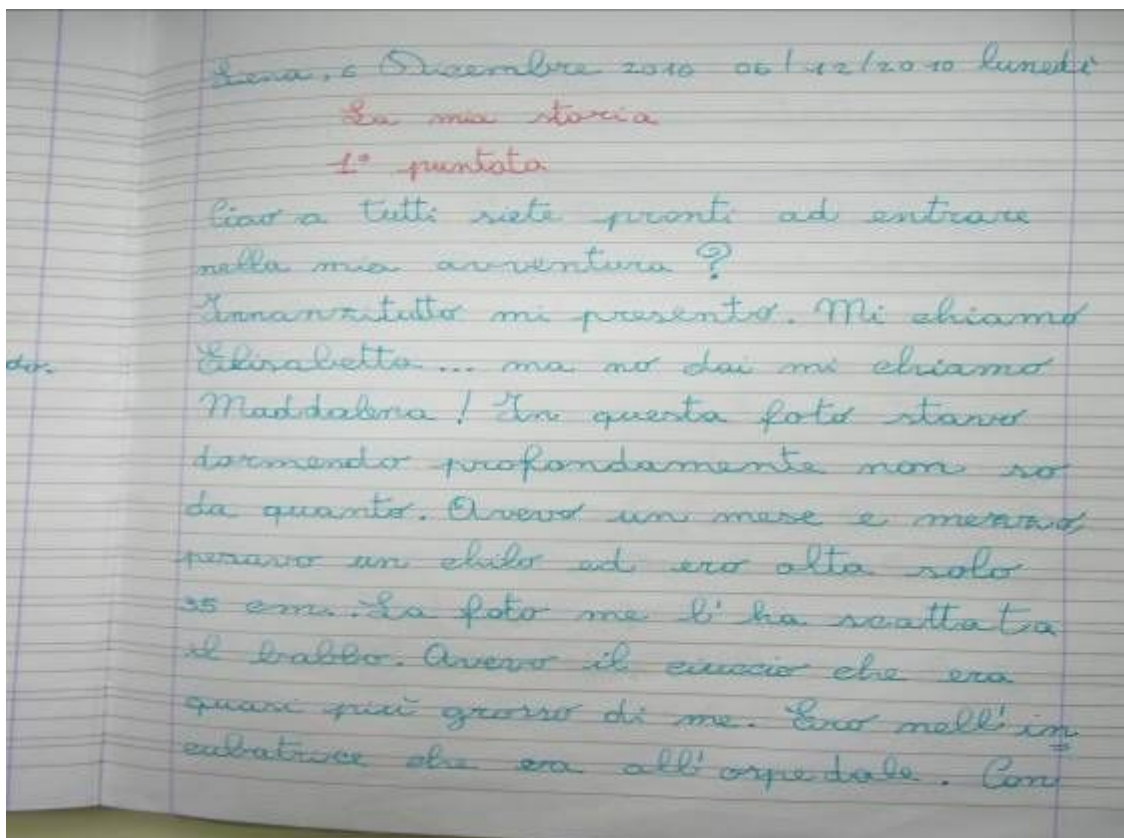 Lena, 6 Dicembre 2010 06/12/2010 lunedì
La mia storia
1° puntata
Ciao a tutti siete pronti ad entrare
nella mia avventura ?
Innanzitutto mi presento. Mi chiamo
do.
Elisabetta... ma no dai mi chiamo
Maddalena ! In questa foto stavo
dormendo profondamente non so
da quanto. Avevo un mese e mezzo,
pesavo un chilo ed ero alta solo
35 cm. La foto me l'ha scattata
il babbo. Avevo il ciuccio che era
quasi più grosso di me. Ero nell'in
cubatrice che era all'ospedale. Con